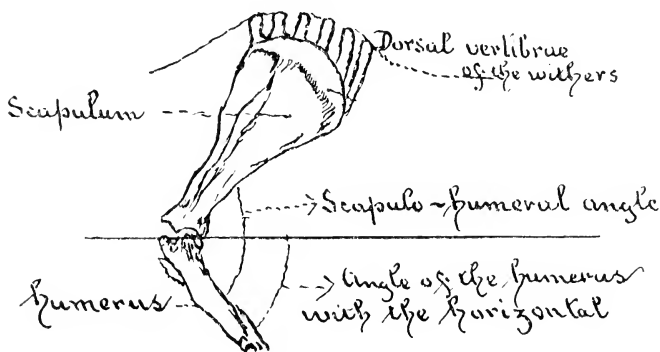 Dorsal vertibrae
of the withers
Scapulum
Scapulo-humeral angle
humerus
Angle of the humerus
with the horizontal